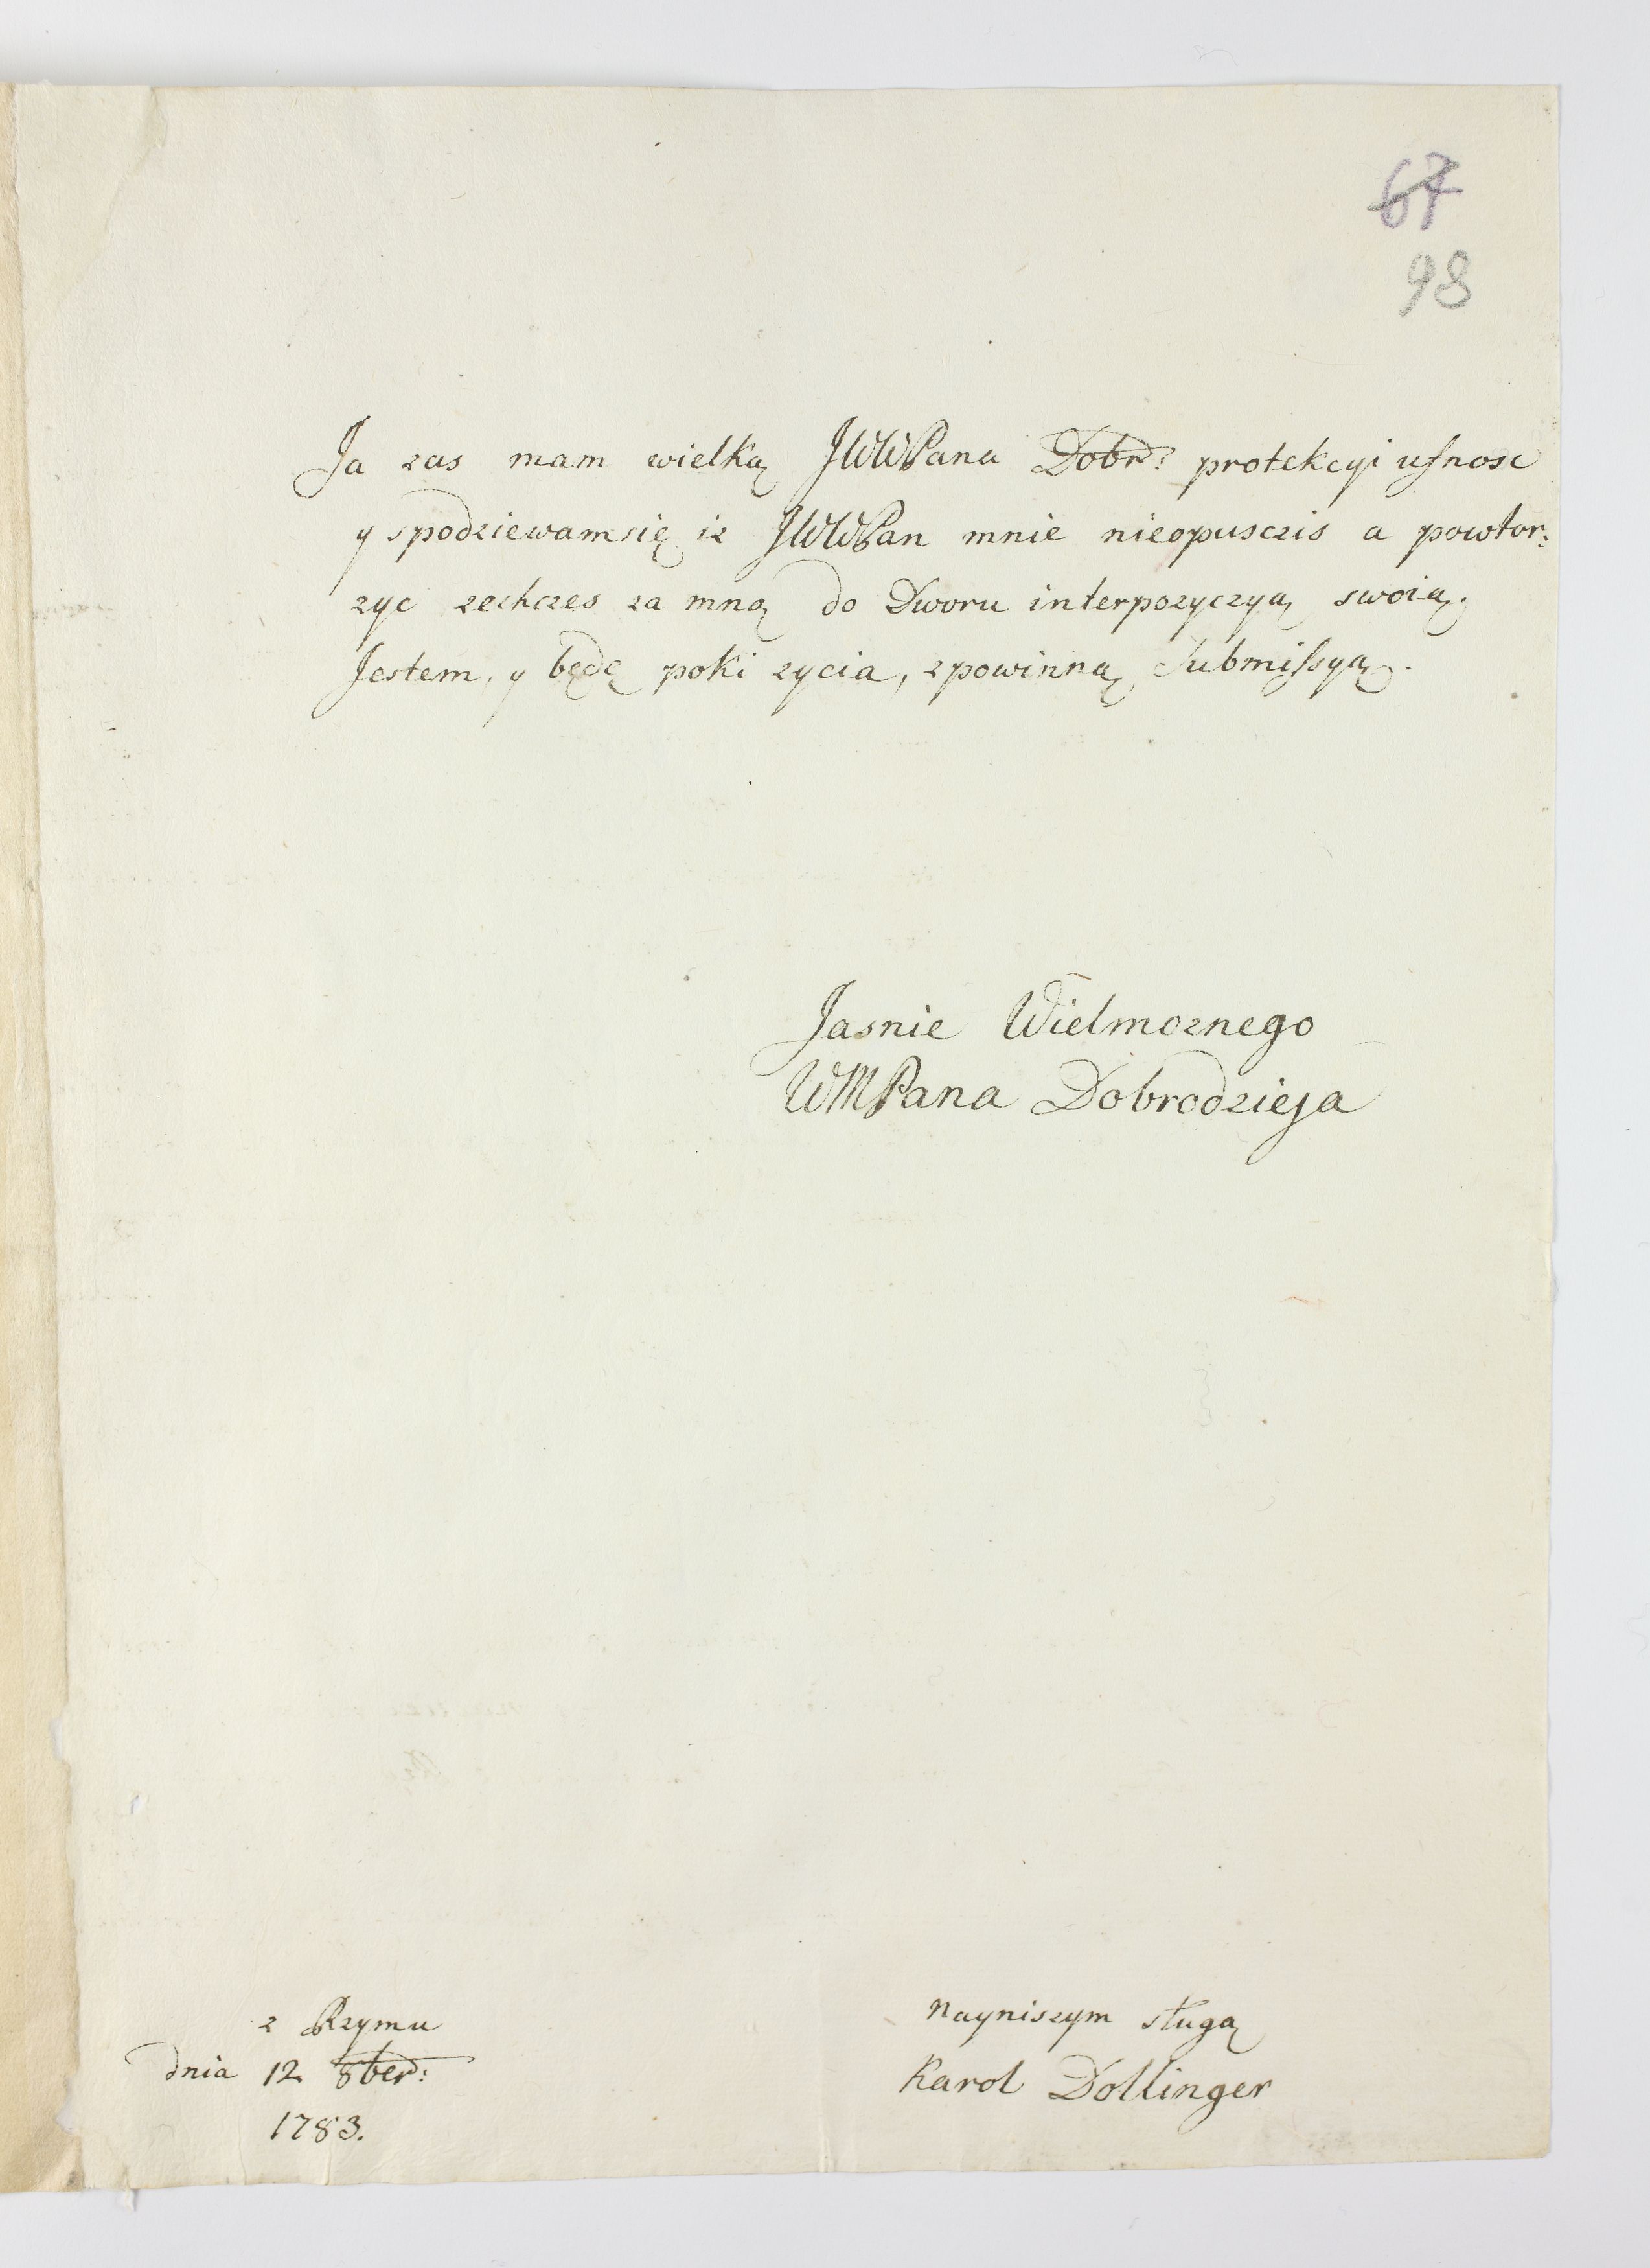 67
98
Ja zas mam wielką JWWPana Dobr: protekcyi ufnosc
y spodziewam się iz JWWPan mnie nieopusczis a powtor:
zyc zechczes za mną do Dworu interpozyczyą swoią.
Jestem, y będę poki zycia, z powinną Submissyą.
Jasnie Wielmoznego
WMPana Dobrodzieja
z Rzymu
dnia 12 8ber:
1783.
nayniszym sługą
Karol Dollinger